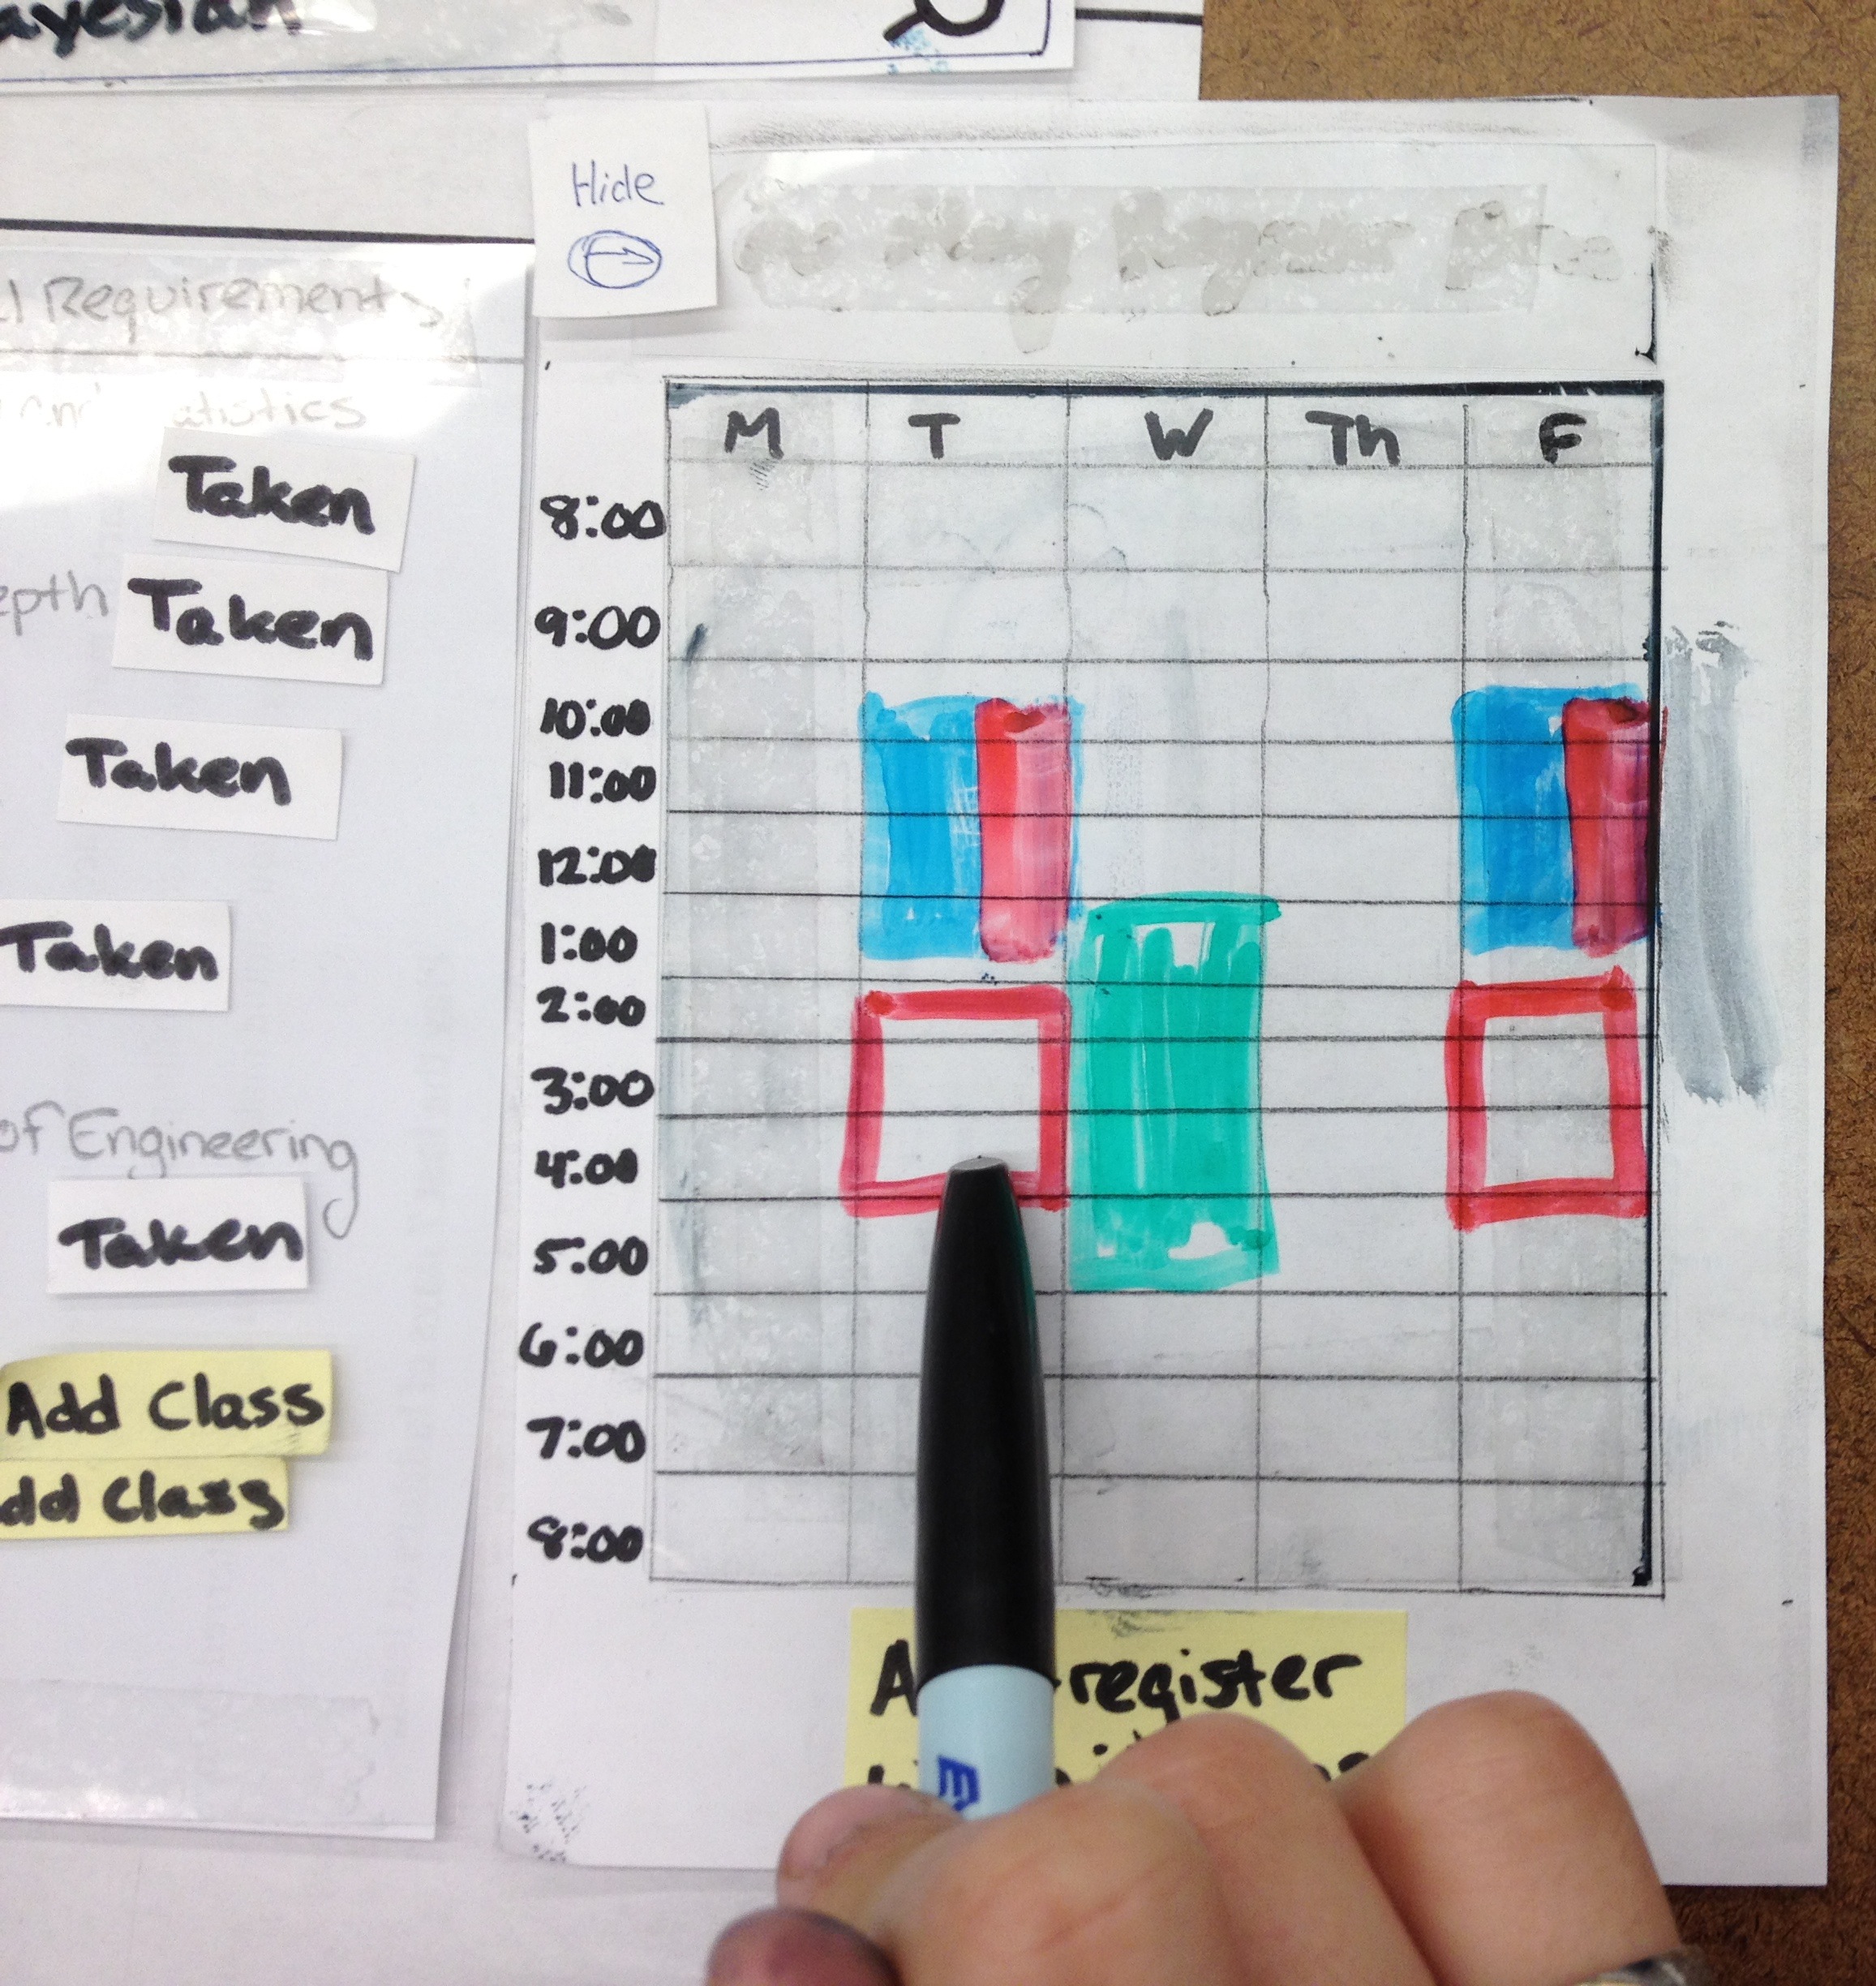 ayesian
Hide
l Requirements
atistics
Taken
epth
Taken
Taken
Taken
of Engineering
Taken
Add Class
dd Class
M T W Th F
8:00
9:00
10:00
11:00
12:00
1:00
2:00
3:00
4:00
5:00
6:00
7:00
8:00
register